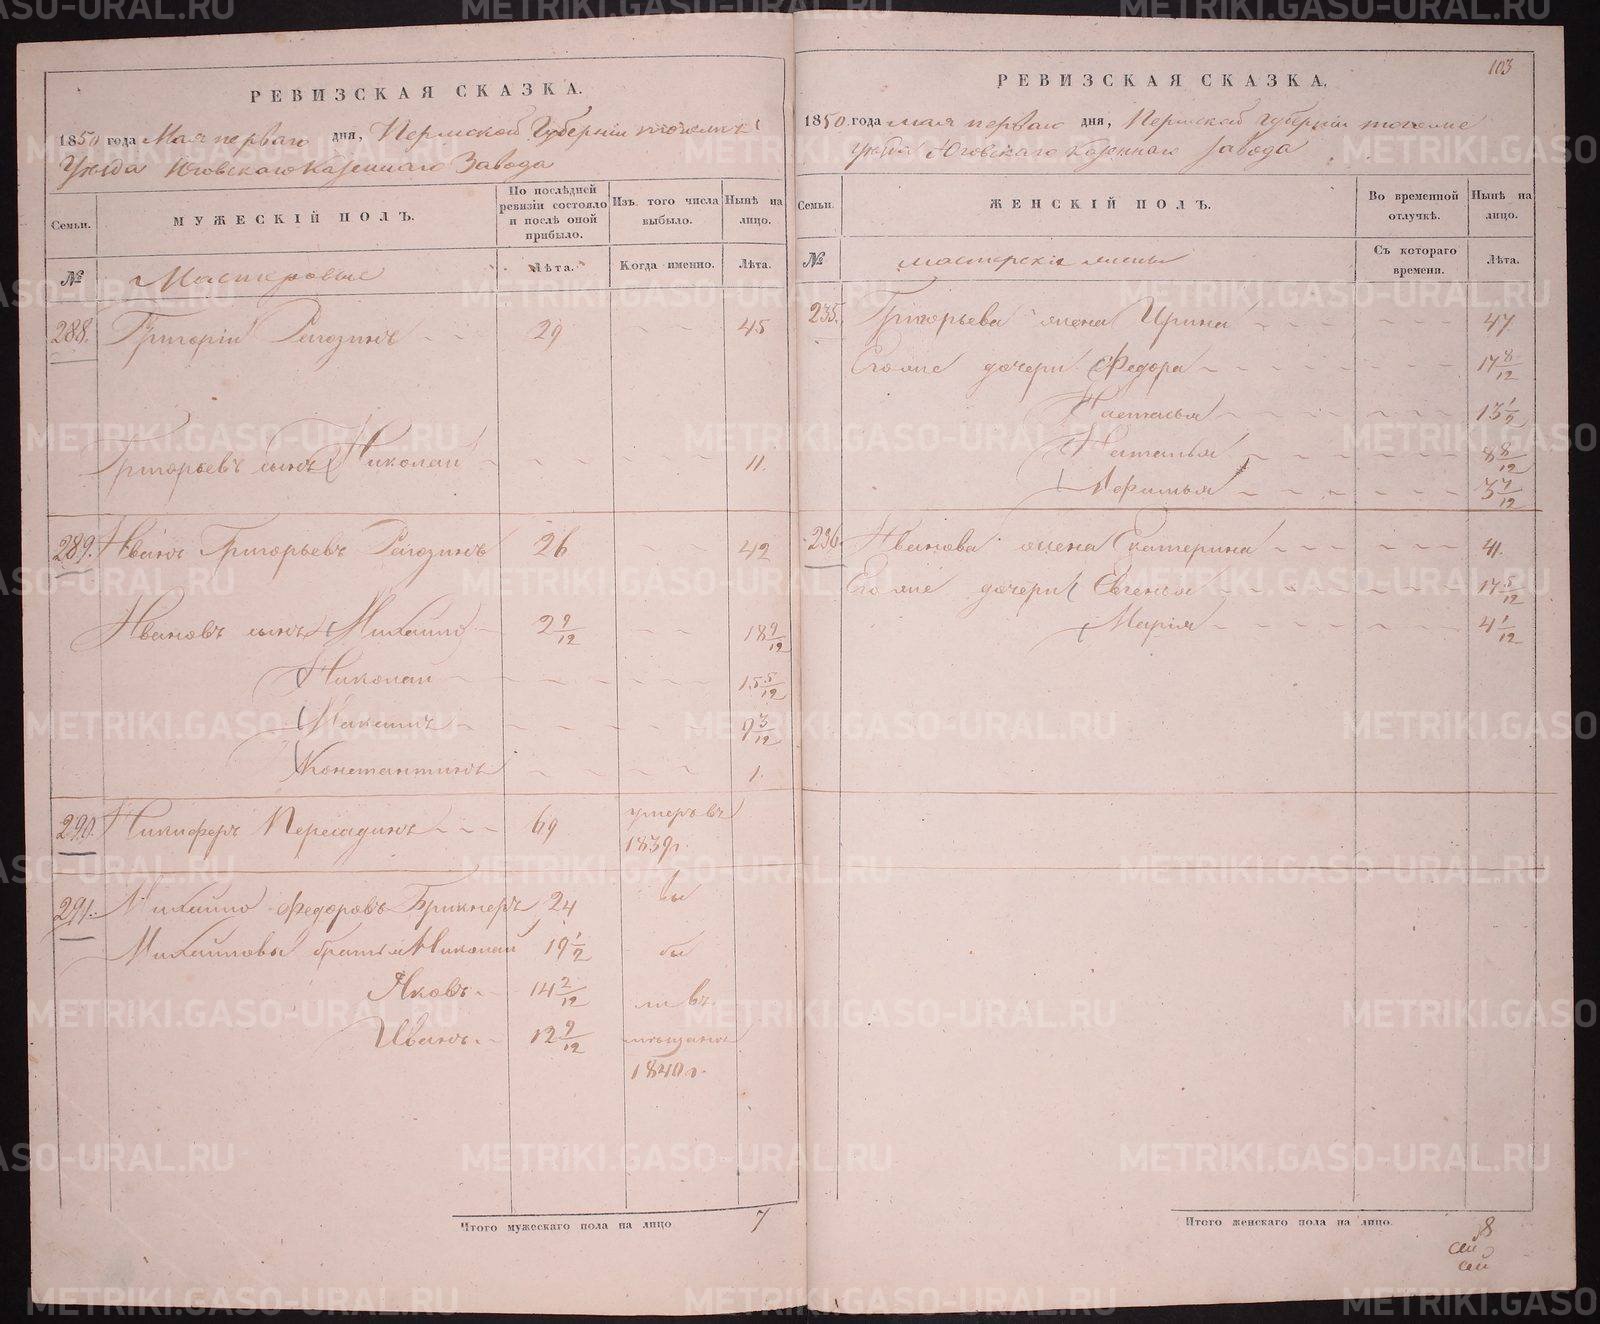 РЕВИЗСКАЯ СКАЗКА.
1850 года Мая перваго дня, Пермской Губерніи тогоже
Уѣзда Юговскаго Казеннаго Завода
Семьи. МУЖЕСКІЙ ПОЛЪ. По послѣдней ревизіи состояло и послѣ оной прибыло. Изъ того числа выбыло. Нынѣ на лицо.
№ Мастеровые Лѣта. Когда именно. Лѣта.
288. Григорій Рагозинъ 29 45
Григорьевъ сынъ Николай 11.
289. Иванъ Григорьевъ Рагозинъ 26 42
Ивановъ сынъ Михайло 2 9/12 18 9/12
Николай 15 5/12
Максимъ 9 3/12
Константинъ 1.
290. Никифоръ Пересадинъ 69 умеръ въ
1839 г.
291. Михайло Федоровъ Брикнеръ 24 вы
Михайловы братья Николай 19 1/2 бы
Яковъ 14 2/12 ли въ
Иванъ 12 9/12 мѣщане
1840 г.
Итого мужескаго пола на лицо 7
103
РЕВИЗСКАЯ СКАЗКА.
1850 года мая перваго дня, Пермской Губерніи тогоже
уѣзда Юговскаго Казеннаго завода
Семьи. ЖЕНСКІЙ ПОЛЪ. Во временной отлучкѣ. Нынѣ на лицо.
№ мастерскія жены Съ котораго времени. Лѣта.
235. Григорьева жена Ирина 47
Егоже дочери Федора 17 8/12
Настасья 13 1/2
Наталья 8 8/12
Афимья 3 7/12
236. Иванова жена Екатерина 41.
Егоже дочери Евгенья 17 5/12
Марія 4 1/12
Итого женскаго пола на лицо. 8
METRIKI.GASO-URAL.RU